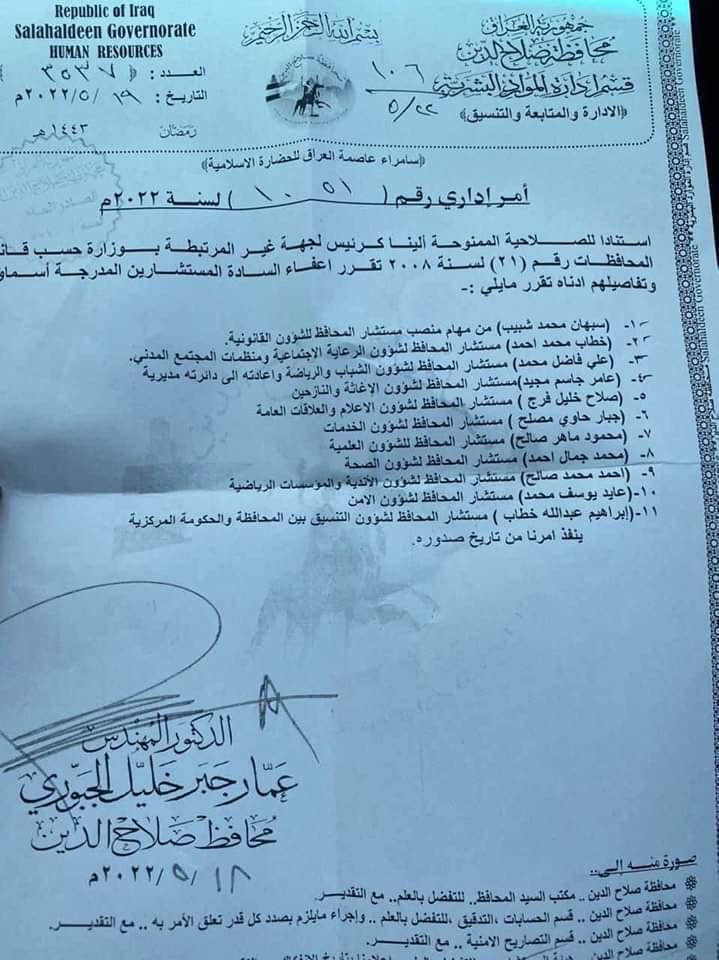 Republic of Iraq
Salahaldeen Governorate
HUMAN RESOURCES
بسم الله الرحمن الرحيم
جمهورية العراق
محافظة صلاح الدين
قسم إدارة الموارد البشرية
(الادارة والمتابعة والتنسيق)
العدد : ( ٣٥٣٧ )
التاريخ : ١٩ /٥ /٢٠٢٢م
رمضان ١٤٤٣هـ
١٠٦
٥/٢٢
((سامراء عاصمة العراق للحضارة الاسلامية))
أمر إداري رقم ( ١٠٥١ ) لسنة ٢٠٢٢م
استنادا للصلاحية الممنوحة ألينا كرئيس لجهة غير المرتبطة بوزارة حسب
المحافظات رقم (٢١) لسنة ٢٠٠٨ تقرر اعفاء السادة المستشارين المدرجة
وتفاصيلهم ادناه تقرر مايلي :-
١- (سبهان محمد شبيب) من مهام منصب مستشار المحافظ للشؤون القانونية.
٢- (خطاب محمد احمد) مستشار المحافظ لشؤون الرعاية الاجتماعية ومنظمات المجتمع المدني.
٣- (علي فاضل محمد) مستشار المحافظ لشؤون الشباب والرياضة واعادته الى دائرته مديرية
٤- (عامر جاسم مجيد) مستشار المحافظ لشؤون الإغاثة والنازحين
٥- (صلاح خليل فرج ) مستشار المحافظ لشؤون الاعلام والعلاقات العامة
٦- (جبار حاوي مصلح ) مستشار المحافظ لشؤون الخدمات
٧- (محمود ماهر صالح) مستشار المحافظ للشؤون العلمية
٨- (محمد جمال احمد) مستشار المحافظ لشؤون الصحة
٩- (احمد محمد صالح) مستشار المحافظ لشؤون الأندية والمؤسسات الرياضية
١٠- (عايد يوسف محمد) مستشار المحافظ لشؤون الامن
١١- (إبراهيم عبدالله خطاب ) مستشار المحافظ لشؤون التنسيق بين المحافظة والحكومة المركزية
ينفذ امرنا من تاريخ صدوره.
الدكتور المهندس
عمار جبر خليل الجبوري
محافظ صلاح الدين
١٨ /٥ /٢٠٢٢م
صورة منه إلى..
محافظة صلاح الدين .. مكتب السيد المحافظ.. للتفضل بالعلم.. مع التقدير.
محافظة صلاح الدين .. قسم الحسابات ،التدقيق ،للتفضل بالعلم .. وإجراء مايلزم بصدد كل قدر تعلق الأمر به .. مع التقدير.
محافظة صلاح الدين .. قسم التصاريح الامنية .. مع التقدير.
محافظة صلاح الدين ..